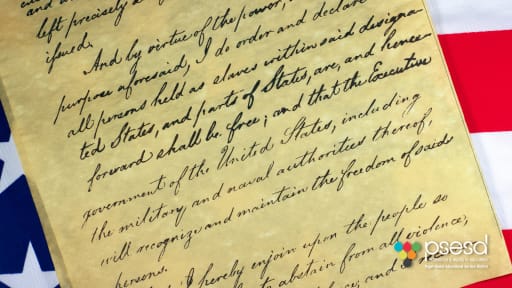 left precisely a
issued.
And by virtue of the power,
purpose aforesaid, I do order and declare
all persons held as slaves within said designa-
ted States, and parts of States, are, and hence-
forward shall be free; and that the Executive
government of the United States, including
the military and naval authorities thereof,
will recognize and maintain the freedom of said
persons.
I hereby enjoin upon the people so
to abstain from all violence;
psesd